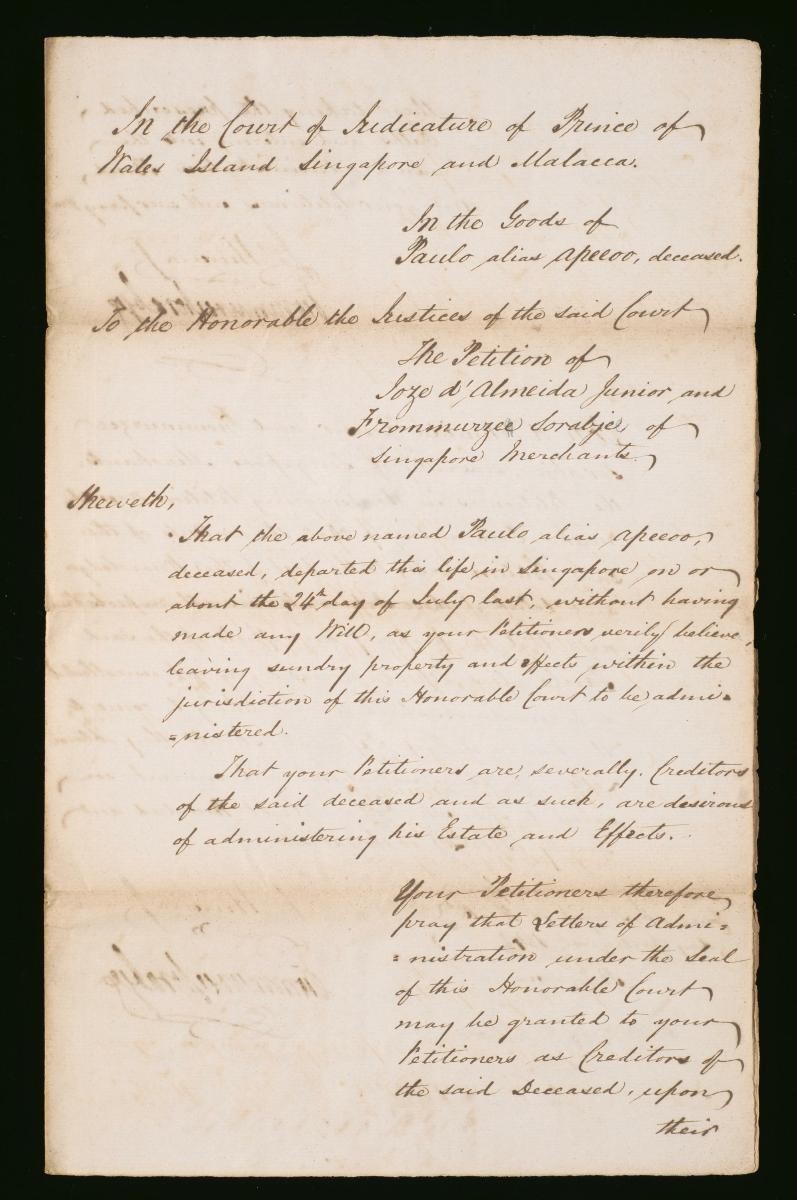 In the Court of Judicature of Prince of
Wales Island Singapore and Malacca.
In the Goods of
Paulo alias Apecoo, deceased.
To the Honorable the Justices of the said Court
The Petition of
Joze d'Almeida Junior and
Frommurzee Sorabjee of
Singapore Merchants
Sheweth,
That the above named Paulo alias Apecoo,
deceased, departed this life in Singapore on or
about the 24th day of July last, without having
made any Will, as your Petitioners verily believe,
leaving sundry property and effects within the
jurisdiction of this Honorable Court to be admi=
=nistered.
That your Petitioners are, severally, Creditors
of the said deceased and as such, are desirous
of administering his Estate and Effects.
Your Petitioners therefore
pray that Letters of Admi=
=nistration under the Seal
of this Honorable Court
may be granted to your
Petitioners as Creditors of
the said Deceased, upon
their